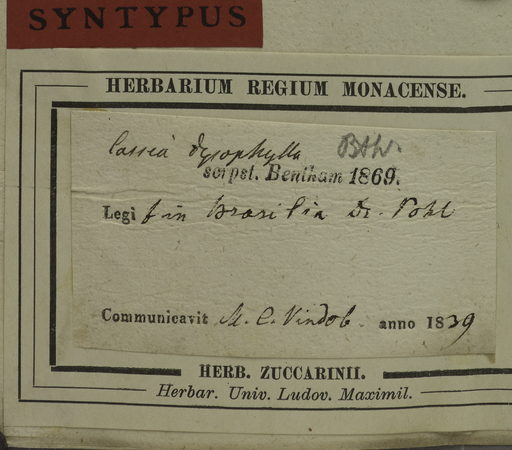 SYNTYPUS
HERBARIUM REGIUM MONACENSE.
Cassia dysophylla Bth.
scrpst. Bentham 1869.
Legi t in Brasilia Dr. Pohl
Communicavit M. C. Vindob. anno 1839
HERB. ZUCCARINII.
Herbar. Univ. Ludov. Maximil.